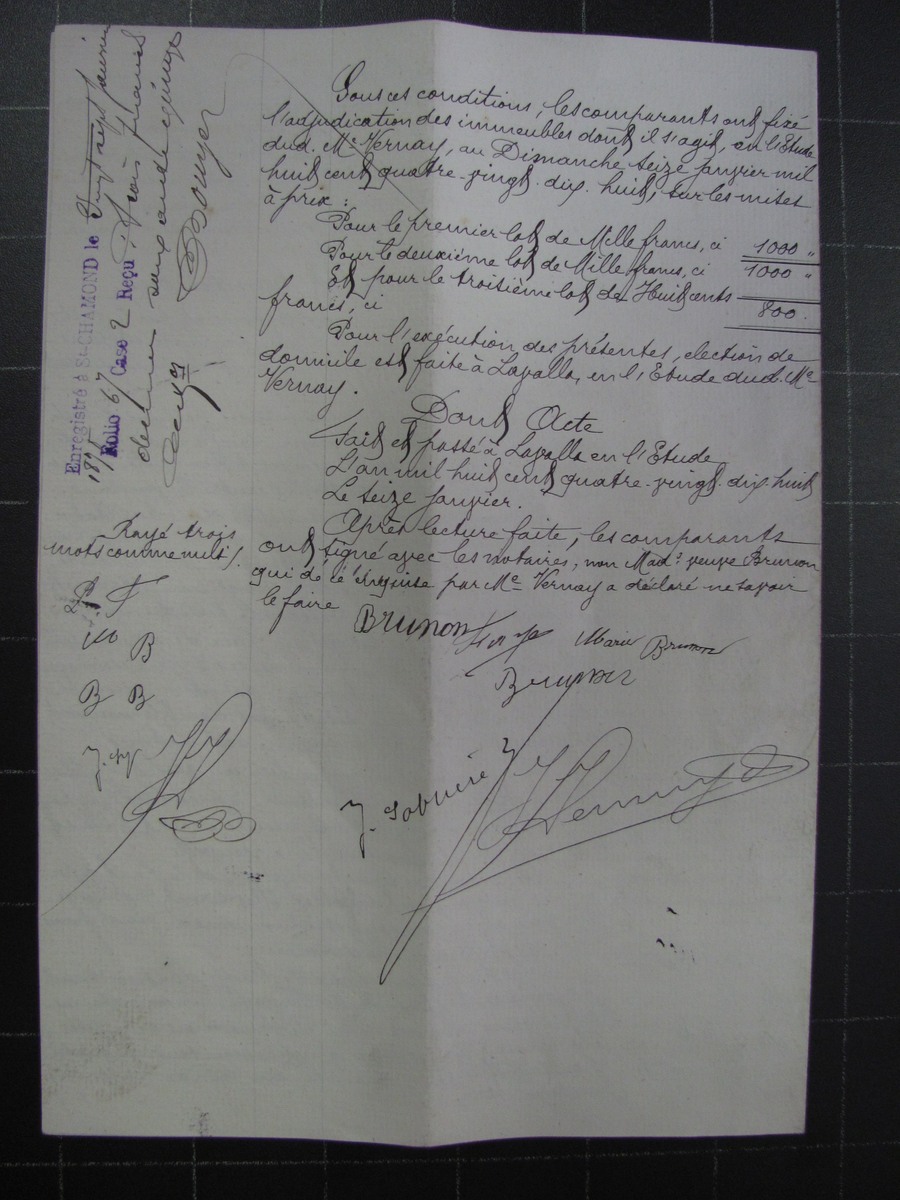 Sous ces conditions, les comparants ont fixé
l'adjudication des immeubles dont il s'agit, en l'Etude
dud. Me Vernay, au Dimanche seize janvier mil
huit cent quatre-vingt-dix-huit, sur les mises
à prix :
Pour le premier lot de Mille francs, ci 1000 "
Pour le deuxième lot de Mille francs, ci 1000 "
Et pour le troisième lot de Huit cents
francs, ci 800.
Pour l'exécution des présentes, election de
domicile est faite à Lavalla, en l'Etude dud. Me
Vernay.
Dont Acte
Fait et passé à Lavalla en l'Etude
L'an mil huit cent quatre-vingt-dix-huit
Le seize janvier.
Après lecture faite, les comparants
ont signé avec les notaires, non Made veuve Brunon
qui de ce requise par Me Vernay a déclaré ne savoir
le faire
Brunon Marie Brunon
Brunon
Enregistré à St-CHAMOND le Vingt sept janvier
Folio 67 Case 2 Reçu trois francs
Rayé trois
mots comme nuls.
B
B B